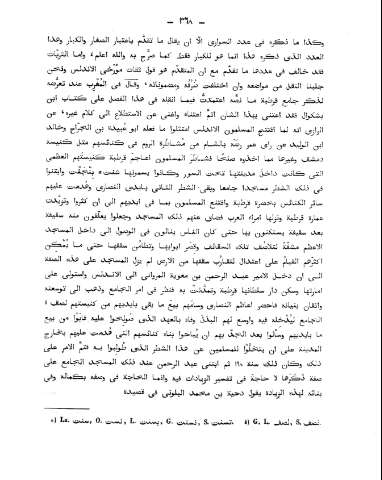 — ٣٦٨ —
وكذا ما ذكره فى عدد الحوارى الّا ان يقال ما تقدّم باعتبار الصغار والكبار وهذا
العدد الذى ذكره هذا انما هو للكبار فقط كما صرّح به والله اعلم، واما الثريّات
فقد خالف فى عددها ما تقدّم مع ان المتقدّم هو قول ثقات مؤرّخى الاندلس ونحن
جلبنا النقل من مواضعه وان اختلفت طرقه ومضموناته، وقال فى المغرب عند تعرّضه
لذكر جامع قرطبة ما نصّه اعتمدتُ فيما انقله فى هذا الفصل على كتاب ابن
بشكوال فقد اعتنى بهذا الشان اتمّ اعتناء واغنى عن الاستطلاع الى كلام غيره، عن
الرازى انه لما افتتح المسلمون الاندلس امتثلوا ما فعله ابو عُبيدة بن الجرّاح وخالد
ابن الوليد عن راى عمر رضّه بالشام من مُشاطرة الروم فى كنائسهم مثل كنيسة
دمشق وغيرها مما اخذوه صلحًا فشاطر المسلمون اعاجم قرطبة كنيستهم العظمى
التى كانت داخل مدينتها تحت السور وكانوا يسمّونها شنت بنجنت وابتنوا
فى ذلك الشطر مسجدًا جامعًا وبقى الشطر الثانى بايدى النصارى وهُدمت عليهم
سائر الكنائس بحضرة قرطبة واقتنع المسلمون بما فى ايديهم الى ان كثروا وتزيّدت
عمارة قرطبة ونزلها امراء العرب فضاق عنهم ذلك المسجد وجعلوا يعلّقون منه سقيفة
بعد سقيفة يستكنّون بها حتى كان الناس ينالون فى الوصول الى داخل المسجد
الاعظم مشقّة لتلاصُق تلك السقائف وقصر ابوابها وتطامن سقفها حتى ما يُمكن
اكثرهم القيام على اعتدال لتقارب سقفها من الارض لم يزل المسجد على هذه الصفة
الى ان دخل الامير عبد الرحمن بن معوية المروانى الى الاندلس واستولى على
امارتها وسكن دار سلطانها قرطبة وتمدّنت به فنظر فى امر الجامع وذهب الى توسعته
واتقان بنيانه فاحضر اعاظم النصارى وسامهم بيع ما بقى بايديهم من كنيستهم لصق
الجامع ليُدخله فيه واوسع لهم البذل وفاء بالعهد الذى صولحوا عليه فابوا من بيع
ما بايديهم وسألوا بعد الجدّ بهم ان يُباحوا بناء كنائسهم التى هُدمت عليهم بخارج
المدينة على ان يتخلّوا للمسلمين عن هذا الشطر الذى طُولبوا به فتمّ الامر على
ذلك وكان ذلك سنة ١٦٨ ثم ابتنى عبد الرحمن عند ذلك المسجد الجامع على
صفة ذكرها لا حاجة فى تفسير الزيادات فيه وانما الحاجة فى وصفه بكماله وفى
بنائه لهذه الزيادة يقول دحية بن محمد البلوى فى قصيدة